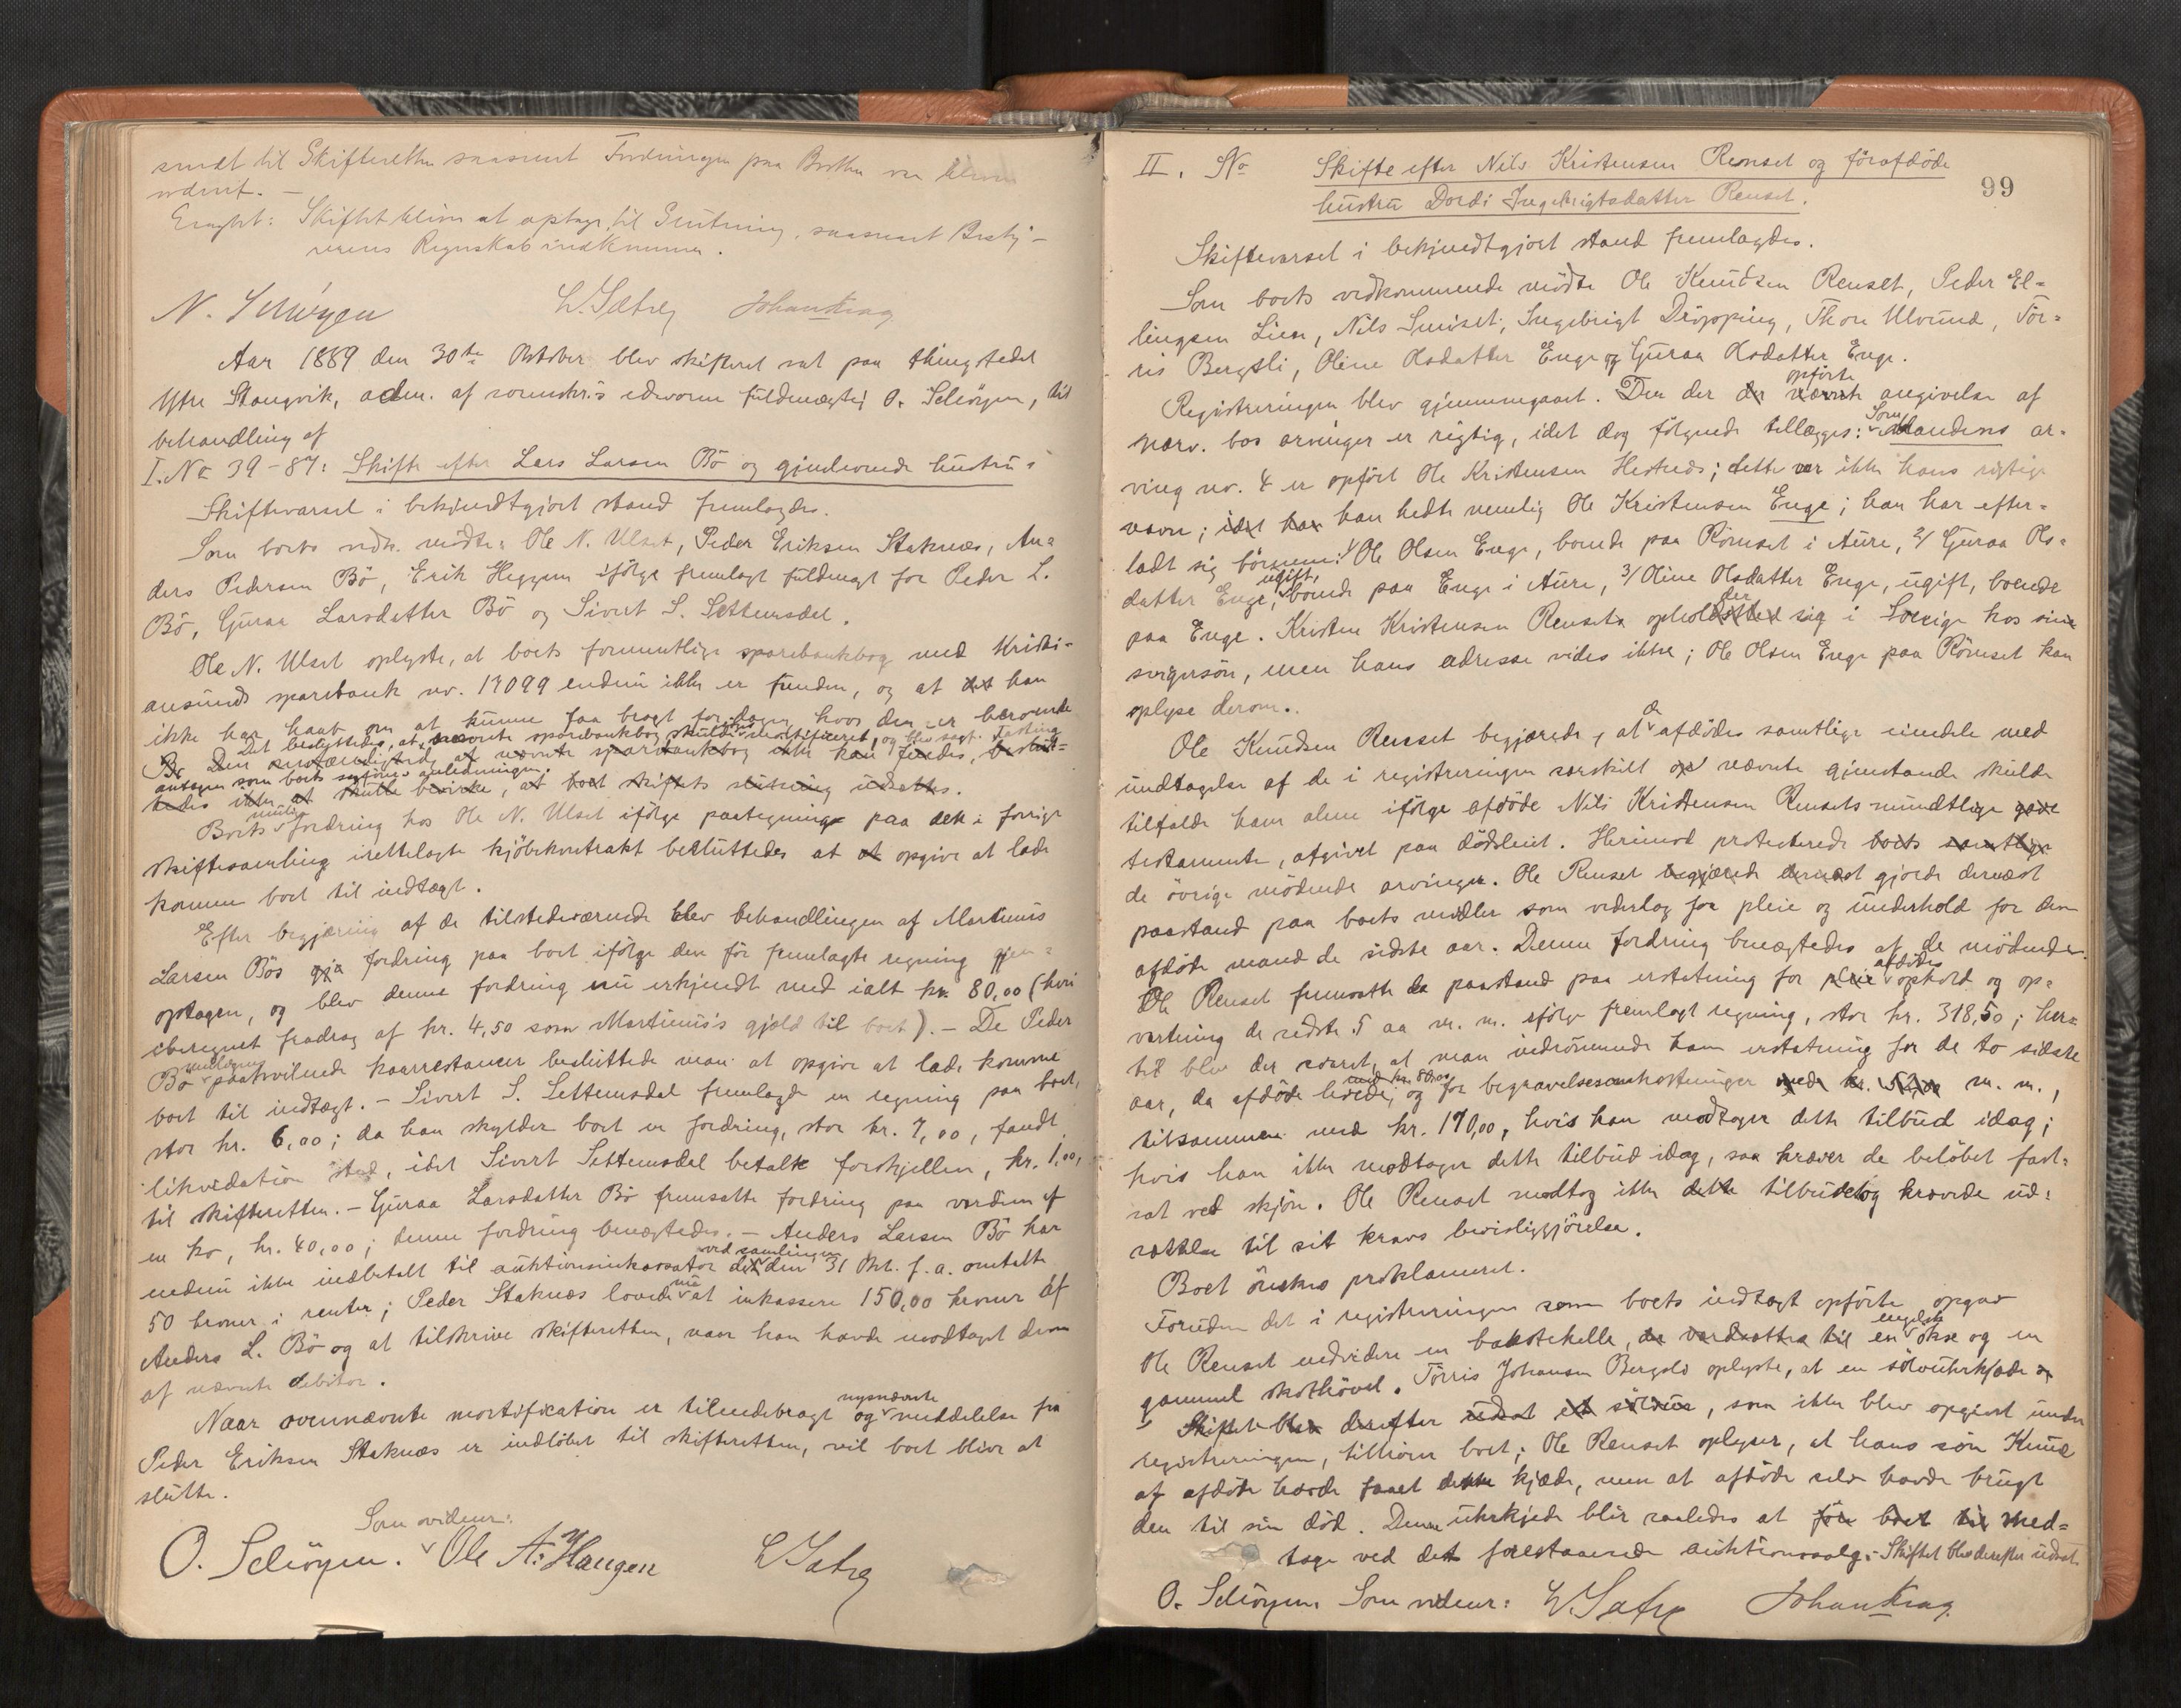 sendt til Skifteretten saasnart Fordringen paa Brotten var bleven
udens.
Eragtet: Skiftet bliver at optage til Slutning, saasnart Besty-
rerens Regnskab indkommer.
N. Selvågen L. Sæter Johan Krag
Aar 1889 den 30te Oktober blev skifteret sat paa thingstedet
Ytre Stangvik, adm. af sorenskr.s edsvorne fuldmægtig O. Schiörgen, til
behandling af
I. No 39-87: Skifte efter Lars Larsen Bö og gjenlevende hustru:
Skiftevarsel i bekjendtgjort stand fremlagdes.
Som boets vedk. mödte: Ole N. Ulset, Peder Eriksen Staknæs, An-
ders Pedersen Bö, Erik Heggem ifölge fremlagt fuldmagt for Peder L.
Bö, Guraa Larsdatter Bö og Sivert S. Settemsdal.
Ole N. Ulset oplyste, at boets formentlige sparebankbog med Kristi-
ansunds sparebank nr. 17099 endnu ikke er funden, og at det han
ikke har haab om at kunne faa bragt for dagen, hvor den er beroende
Det besluttedes, at nævnte sparebankbog skulde mortificeret, og blev sagf. Fasting
B. Den omstændighed, at nævnte sparebankbog ikke kan findes, beslut-
antagen som boets sagförer i anledningen.
tedes ikke at skulle bevirke, at boet skiftets slutning udsattes.
Boets mulige fordring hos Ole N. Ulset ifölge paategning paa den i forrige
skiftesamling irettelagte kjöbekontrakt besluttedes at at opgive at lade
komme boet til indtægt.
Efter begjæring af de tilstedeværende blev behandlingen af Martinus
Larsen Bös gjæ fordring paa boet ifölge den för fremlagte regning gjen-
optagen, og blev denne fordring nu erkjendt med ialt kr. 80,00 (heri
iberegnet fradrag af kr. 4,50 som Martinus's gjæld til boet). – De Peder
Bö paahvilende kaarrestancer besluttede man at opgive at lade komme
boet til indtægt. – Sivert S. Settemsdal fremlagde en regning paa boet,
stor kr. 6,00; da han skylder boet en fordring, stor kr. 7,00, fandt
likvidation sted, idet Sivert Settemsdal betalte forskjellen, kr. 1,00,
til skifteretten. – Guraa Larsdatter Bö fremsatte fordring paa værdien af
en ko, kr. 40,00; denne fordring benægtedes. – Anders Larsen Bö har
endnu ikke indbetalt til auktionsinkassator det ved samlingen den 31 Okt. f. a. omtalte
50 kroner i renter; Peder Staknæs lovede nu at inkassere 150,00 kroner af
Anders L. Bö og at tilskrive skifteretten, naar han havde modtaget dem
af nævnte debitor.
Naar ovennævnte mortifikation er tilendebragt og nysnævnte meddelelse fra
Peder Eriksen Staknæs er indlöbet til skifteretten, vil boet blive at
slutte.
Som vidner:
O. Schiörgen. Ole A. Haugen L. Sæter
II. No Skifte efter Nils Kristensen Renset og förafdöde
hustru Dordi Ingebrigtsdatter Renset.
99
Skiftevarsel i bekjendtgjort stand fremlagdes.
Som boets vedkommende mödte Ole Knudsen Renset, Peder El-
lingsen Lien, Nils Smiset, Ingebrigt Dröpping, Thore Ulvund, Tör-
ris Bergsli, Oline Olsdatter Enge og Guraa Olsdatter Enge.
Registreringen blev gjennemgaaet. Den der der nævnte opförte angivelse af
nærv. bos arvinger er rigtig, idet dog fölgende tillægges: Som Mandens ar-
ving nr. 4 er opfört Ole Kristensen Hestnes; dette var ikke hans rigtige
navn; idet han han hedte nemlig Ole Kristensen Enge; han har efter-
ladt sig börnene: 1/ Ole Olsen Enge, boende paa Römset i Aure, 2/ Guraa Ols-
datter Enge, ugift, boende paa Enge i Aure, 3/ Oline Olsdatter Enge, ugift, boende
paa Enge. Kristen Kristensen Rensets opholder sig i Sverige hos sin
svigersön, men hans adresse vides ikke; Ole Olsen Enge paa Römset kan
oplyse derom.
Ole Knudsen Renset begjærede, at de afdödes samtlige eiendele med
undtagelse af de i registreringen særskilt op nævnte gjenstande skulde
tilfalde ham alene ifölge afdöde Nils Kristensen Rensets mundtlige gave
testamente, afgivet paa dödsleiet. Herimod protesterede boets samtlige
de övrige mödende arvinger. Ole Renset begjærede dernæst gjorde dernæst
paastand paa boets midler som vederlag for pleie og underhold for den
afdöde mand de sidste aar. Denne fordring benægtedes af de mödende.
Ole Renset fremsatte da paastand paa erstatning for pleie afdödes ophold og op-
vartning de sidste 5 aa m. m. ifölge fremlagt regning, stor kr. 318,50; her-
til blev der svaret, at man indrömmede ham erstatning for de to sidste
aar, da afdöde levede, med kr. 80,00 og for begravelsesomkostninger med kr. 52,00 m. m.,
tilsammen med kr. 170,00, hvis han modtager dette tilbud idag;
hvis han ikke modtager dette tilbud idag, saa kræver de belöbet fast-
sat ved skjön. Ole Renset modtog ikke dette tilbud og krævede ud-
sættelse til sit kravs bevisliggjörelse.
Boet önskes proklameret.
Foruden det i registreringen som boets indtægt opförte opgav
Ole Renset endvidere en bakstehelle, der værdsattes til en engelsk økse og en
gammel skothövel. Törris Johansen Bergsli oplyste, at en sölvuhrkjæde og
Skiftet blev derefter udsat et sölvur, som ikke blev opgivet under
registreringen, tilhörer boet; Ole Renset oplyser, at hans sön Knud
af afdöde havde faaet denne kjæde, men at afdöde selv havde brugt
den til sin död. Denne uhrkjede blir saaledes at för boet til med-
tage ved det forestaaende auktionssalg. - Skiftet blev derefter udsat.
O. Schiörgen. Som vidner: L. Sæter Johan Krag.